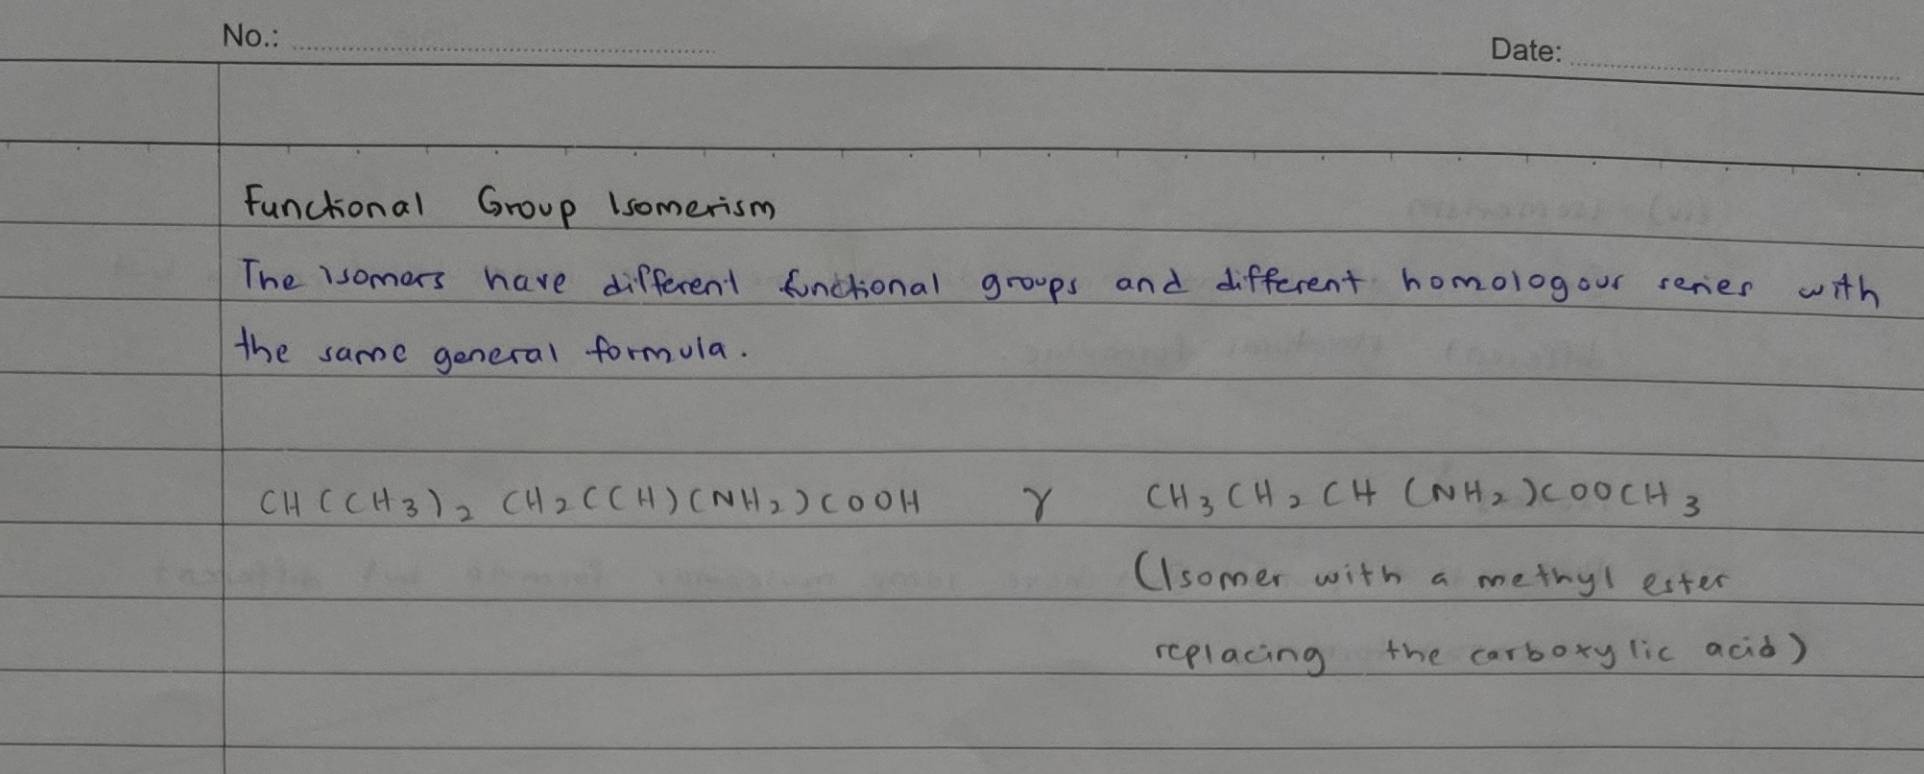 No.:
Date:
Functional Group Isomerism
The isomers have different functional groups and different homologous series with
the same general formula.
CH(CH₃)₂ CH₂C(CH)(NH₂)COOH γ CH₃CH₂CH(NH₂)COOCH₃
(Isomer with a methyl ester
replacing the carboxylic acid)